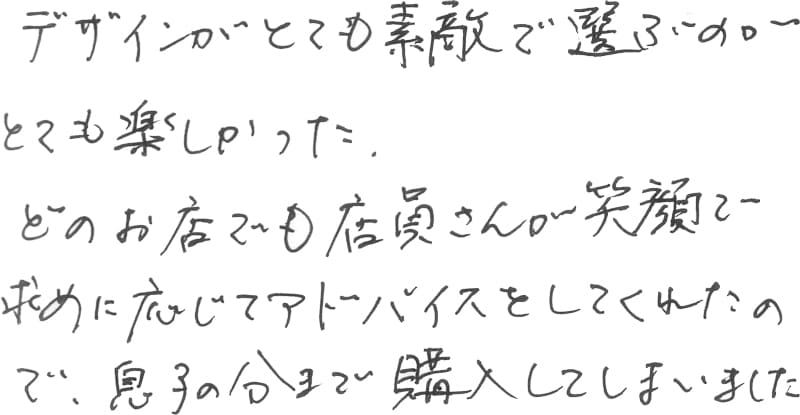 デザインがとても素敵で選ぶのが
とても楽しかった.
どのお店でも店員さんが笑顔で
求めに応じてアドバイスをしてくれたの
で、息子の分まで購入してしまいました